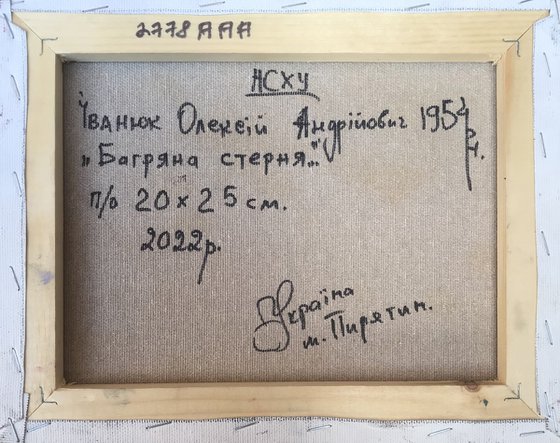 2778AAA
НСХУ
Іванюк Олексій Андрійович 1954 р.н.
„Багряна стерня..."
п/о 20 х 25 см.
2022р.
Україна
м. Пирятин.